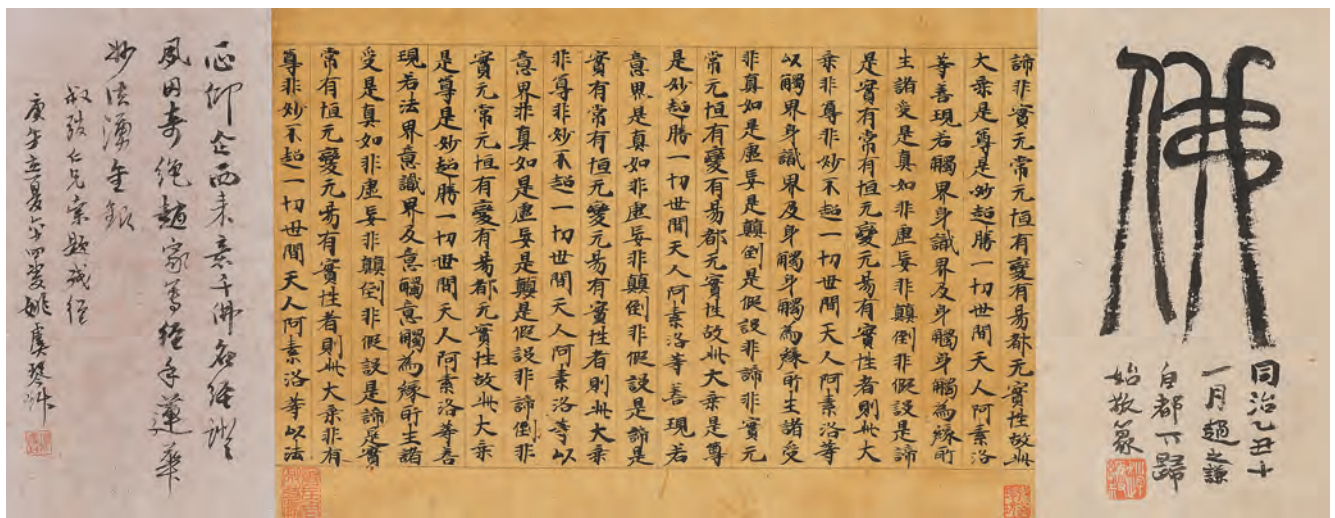 佛
同治乙丑十
一月趙之謙
自都下歸
始敬篆
諦非實无常无恒有變有易都无實性故此
大乘是尊是妙超勝一切世間天人阿素洛
等善現若觸界身識界及身觸身觸為緣所
生諸受是真如非虛妄非顛倒非假說是諦
是實有常有恒无變无易有實性者則此大
乘非尊非妙不超一切世間天人阿素洛等
以觸界身識界及身觸身觸為緣所生諸受
非真如是虛妄是顛倒是假說非諦非實无
常无恒有變有易都无實性故此大乘是尊
是妙超勝一切世間天人阿素洛等善現若
意界是真如非虛妄非顛倒非假說是諦是
實有常有恒无變无易有實性者則此大乘
非尊非妙不超一切世間天人阿素洛等以
意界非真如是虛妄是顛是假說非諦倒非
實无常无恒有變有易都无實性故此大乘
是尊是妙超勝一切世間天人阿素洛等善
現若法界意識界及意觸意觸為緣所生諸
受是真如非虛妄非顛倒非假說是諦是實
常有恒无變无易有實性者則此大乘非有
尊非妙不超一切世間天人阿素洛等以法
仰企西来意千佛名經證
夙因奇絕趙家寫經手蓮華
妙法湧金銀
仁兄索題殘經
庚午立夏姚虞琴